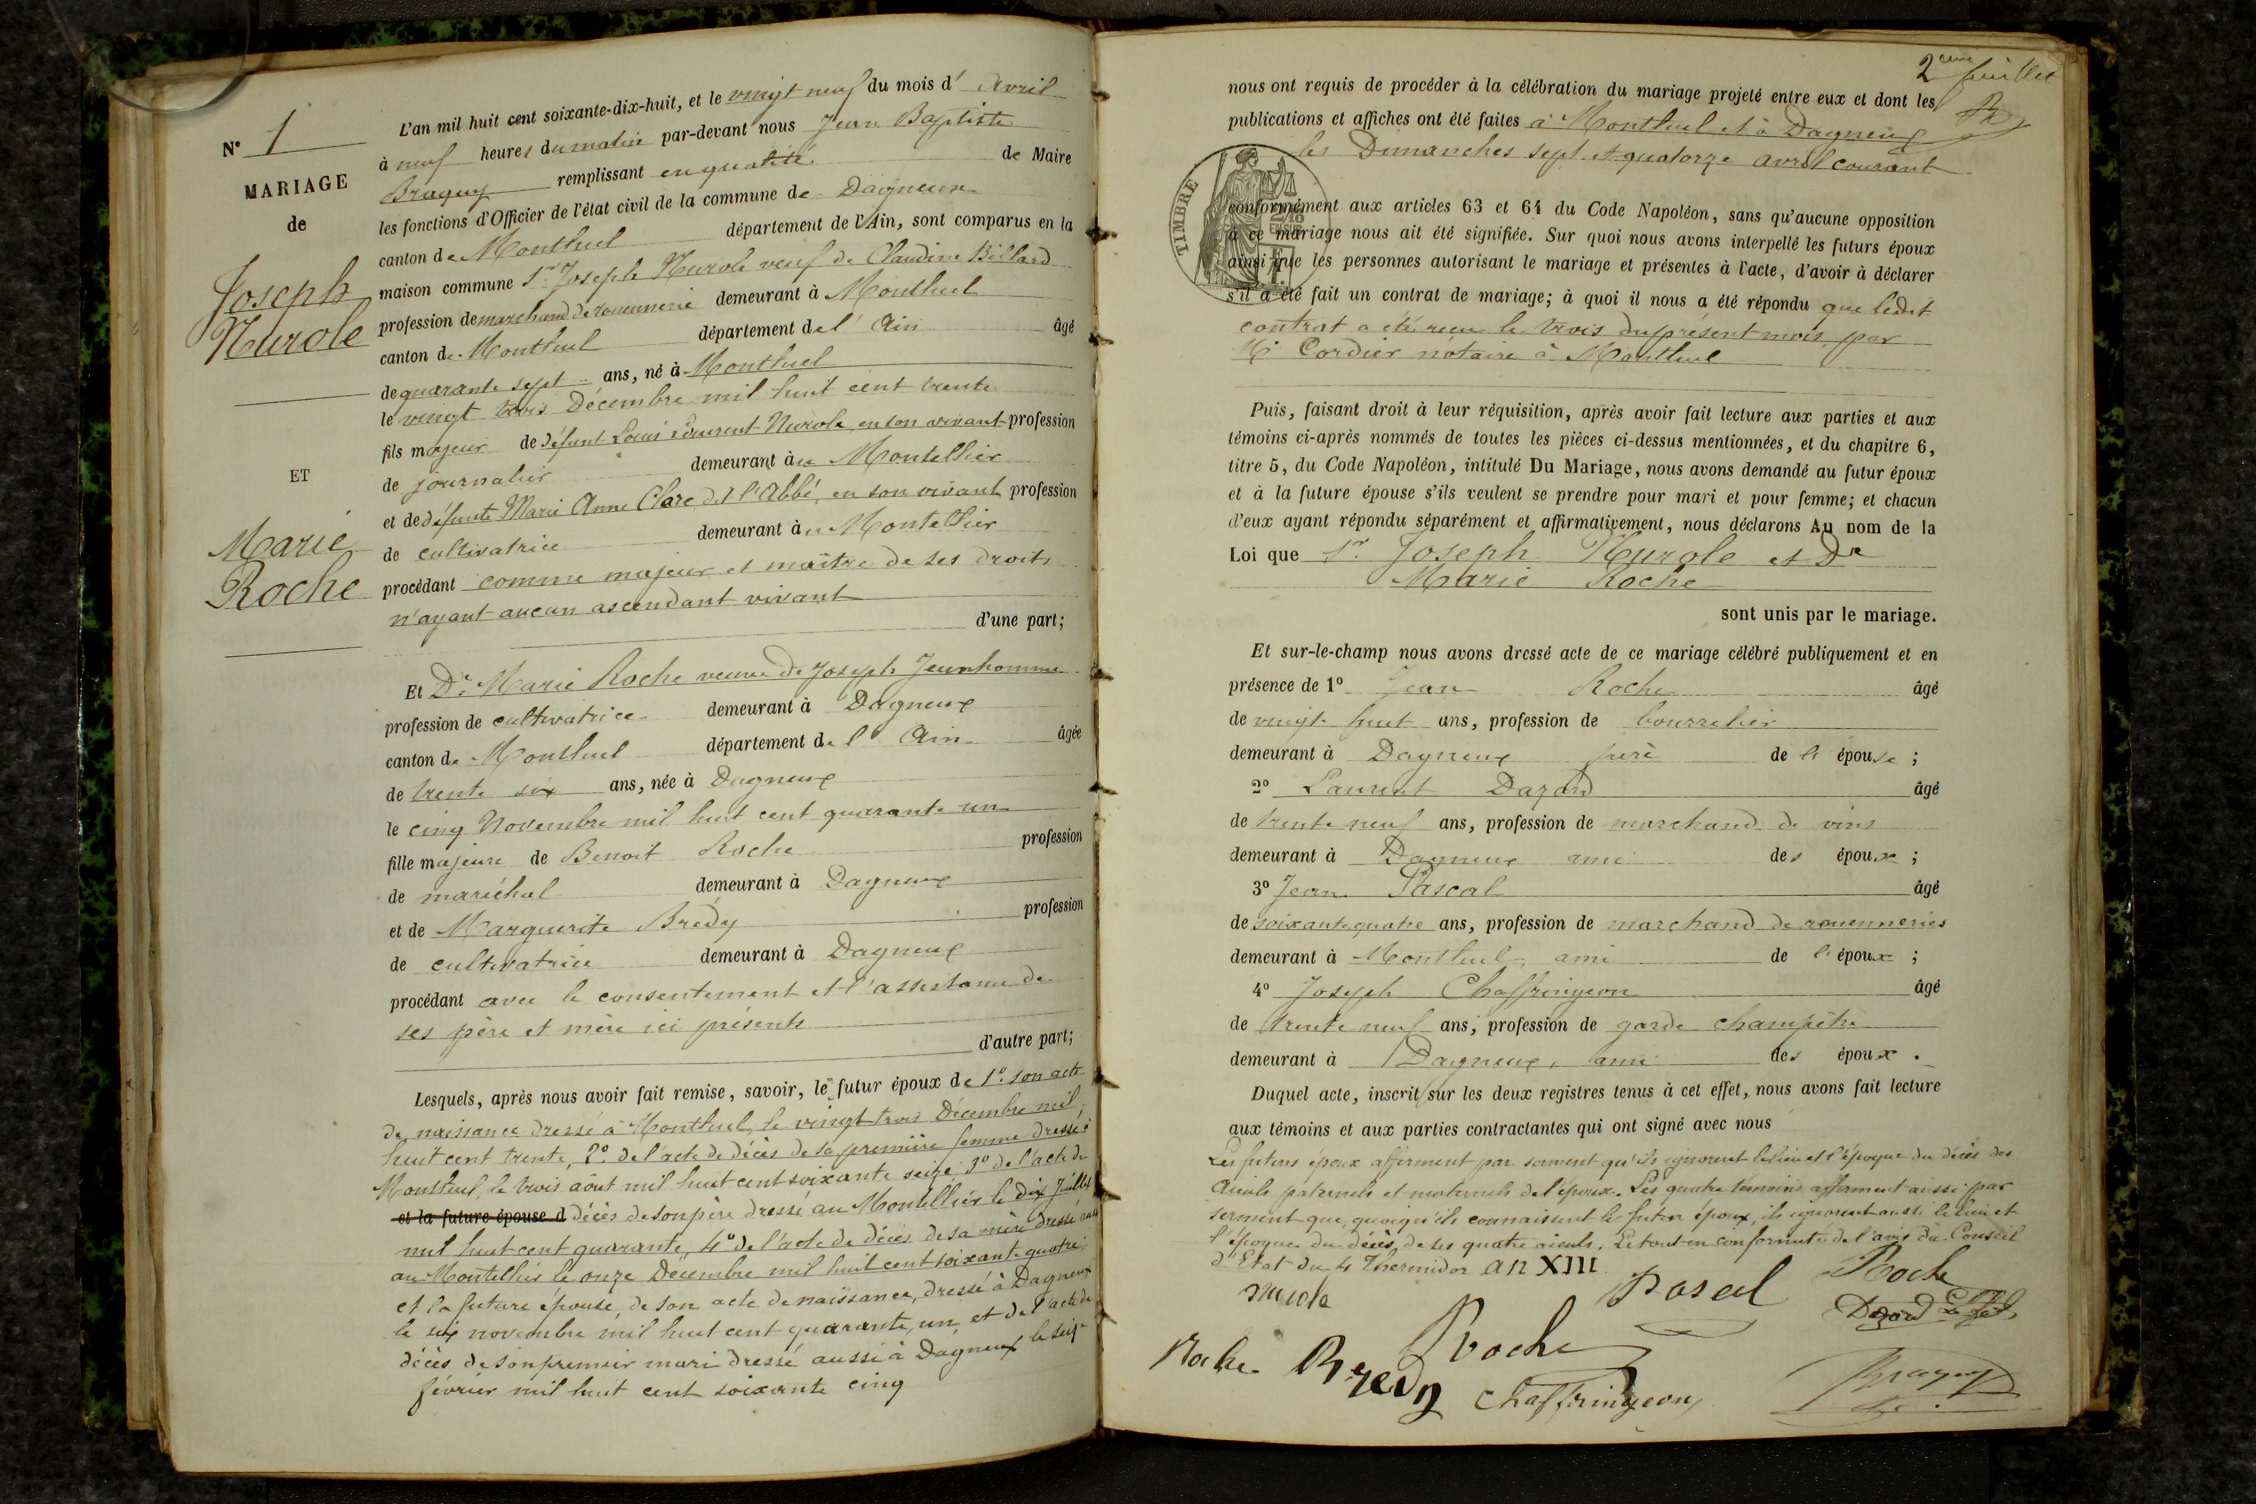 N° 1
MARIAGE
de
Joseph
Nurole
ET
Marie
Roche
L'an mil huit cent soixante-dix-huit, et le vingt neuf du mois d' Avril
à neuf heures du matin par-devant nous Jean Baptiste
Braguy remplissant en qualité de Maire
les fonctions d'Officier de l'état civil de la commune de Dagneux
canton de Montluel département de l'Ain, sont comparus en la
maison commune Sr. Joseph Nurole veuf de Claudine Billard
profession de marchand de rouennerie demeurant à Montluel
canton de Montluel département de l' Ain âgé
de quarante sept ans, né à Montluel
le vingt trois Décembre mil huit cent trente
fils majeur de défunt Louis Laurent Nurole, en son vivant profession
de journalier demeurant au Montellier
et de défunte Marie Anne Clare dit l'Abbé, en son vivant profession
de cultivatrice demeurant au Montellier
procédant comme majeur et maître de ses droits
n'ayant aucun ascendant vivant
d'une part;
Et De. Marie Roche veuve de Joseph Jeunhomme
profession de cultivatrice demeurant à Dagneux
canton de Montluel département de l' Ain âgée
de trente six ans, née à Dagneux
le cinq Novembre mil huit cent quarante un
fille majeure de Benoit Roche profession
de maréchal demeurant à Dagneux
et de Marguerite Brédy profession
de cultivatrice demeurant à Dagneux
procédant avec le consentement et l'assistance de
ses père et mère ici présents
d'autre part;
Lesquels, après nous avoir fait remise, savoir, le futur époux de 1°. son acte
de naissance dressé à Montluel, le vingt trois Décembre mil
huit cent trente, 2°. de l'acte de décès de sa première femme dressé à
Montluel, le trois août mil huit cent soixante seize 3° de l'acte de
et la future épouse d décès de son père dressé au Montellier le dix Juillet
mil huit cent quarante, 4° de l'acte de décès de sa mère dressé aussi
au Montellier le onze Décembre mil huit cent soixante quatre
et la future épouse, de son acte de naissance, dressé à Dagneux
le six novembre mil huit cent quarante, un, et de l'acte de
décès de son premier mari dressé aussi à Dagneux le seize
février mil huit cent soixante cinq
2eme feuillet
nous ont requis de procéder à la célébration du mariage projeté entre eux et dont les
publications et affiches ont été faites à Montluel et à Dagneux
les Dimanches sept et quatorze avril courant
TIMBRE
conformément aux articles 63 et 64 du Code Napoléon, sans qu'aucune opposition
à ce mariage nous ait été signifiée. Sur quoi nous avons interpellé les futurs époux
ainsi que les personnes autorisant le mariage et présentes à l'acte, d'avoir à déclarer
s'il a été fait un contrat de mariage; à quoi il nous a été répondu que ledit
contrat a été reçu le trois du présent mois par
Me Cordier notaire à Montluel
Puis, faisant droit à leur réquisition, après avoir fait lecture aux parties et aux
témoins ci-après nommés de toutes les pièces ci-dessus mentionnées, et du chapitre 6,
titre 5, du Code Napoléon, intitulé Du Mariage, nous avons demandé au futur époux
et à la future épouse s'ils veulent se prendre pour mari et pour femme; et chacun
d'eux ayant répondu séparément et affirmativement, nous déclarons Au nom de la
Loi que Sr. Joseph Nurole et De
Marie Roche
sont unis par le mariage.
Et sur-le-champ nous avons dressé acte de ce mariage célébré publiquement et en
présence de 1° Jean Roche âgé
de vingt huit ans, profession de bourrelier
demeurant à Dagneux frère de l' épouse ;
2° Laurent Dazord âgé
de trente neuf ans, profession de marchand de vins
demeurant à Dagneux ami des époux ;
3° Jean Pascal âgé
de soixante quatre ans, profession de marchand de rouenneries
demeurant à Montluel, ami de l' époux ;
4° Joseph Chaffringeon âgé
de trente neuf ans, profession de garde champêtre
demeurant à Dagneux, ami des époux .
Duquel acte, inscrit sur les deux registres tenus à cet effet, nous avons fait lecture
aux témoins et aux parties contractantes qui ont signé avec nous
Les futurs époux afferment par serment qu'ils ignorent le lieu et l'époque du décès des
aïeuls paternels et maternels de l'époux. Les quatre témoins afferment aussi par
serment que, quoiqu'ils connaissent le futur époux, ils ignorent aussi le lieu et
l'époque du décès de ses quatre aïeuls. Le tout en conformité de l'avis du Conseil
d'Etat du 4 Thermidor an XIII
nurole Pascal Roche
Dazord
Roche Bredy Roche
Chaffringeon Braguy